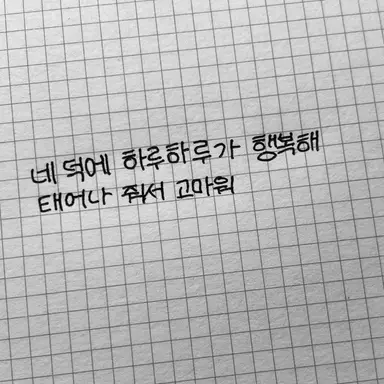 네 덕에 하루하루가 행복해
태어나 줘서 고마워